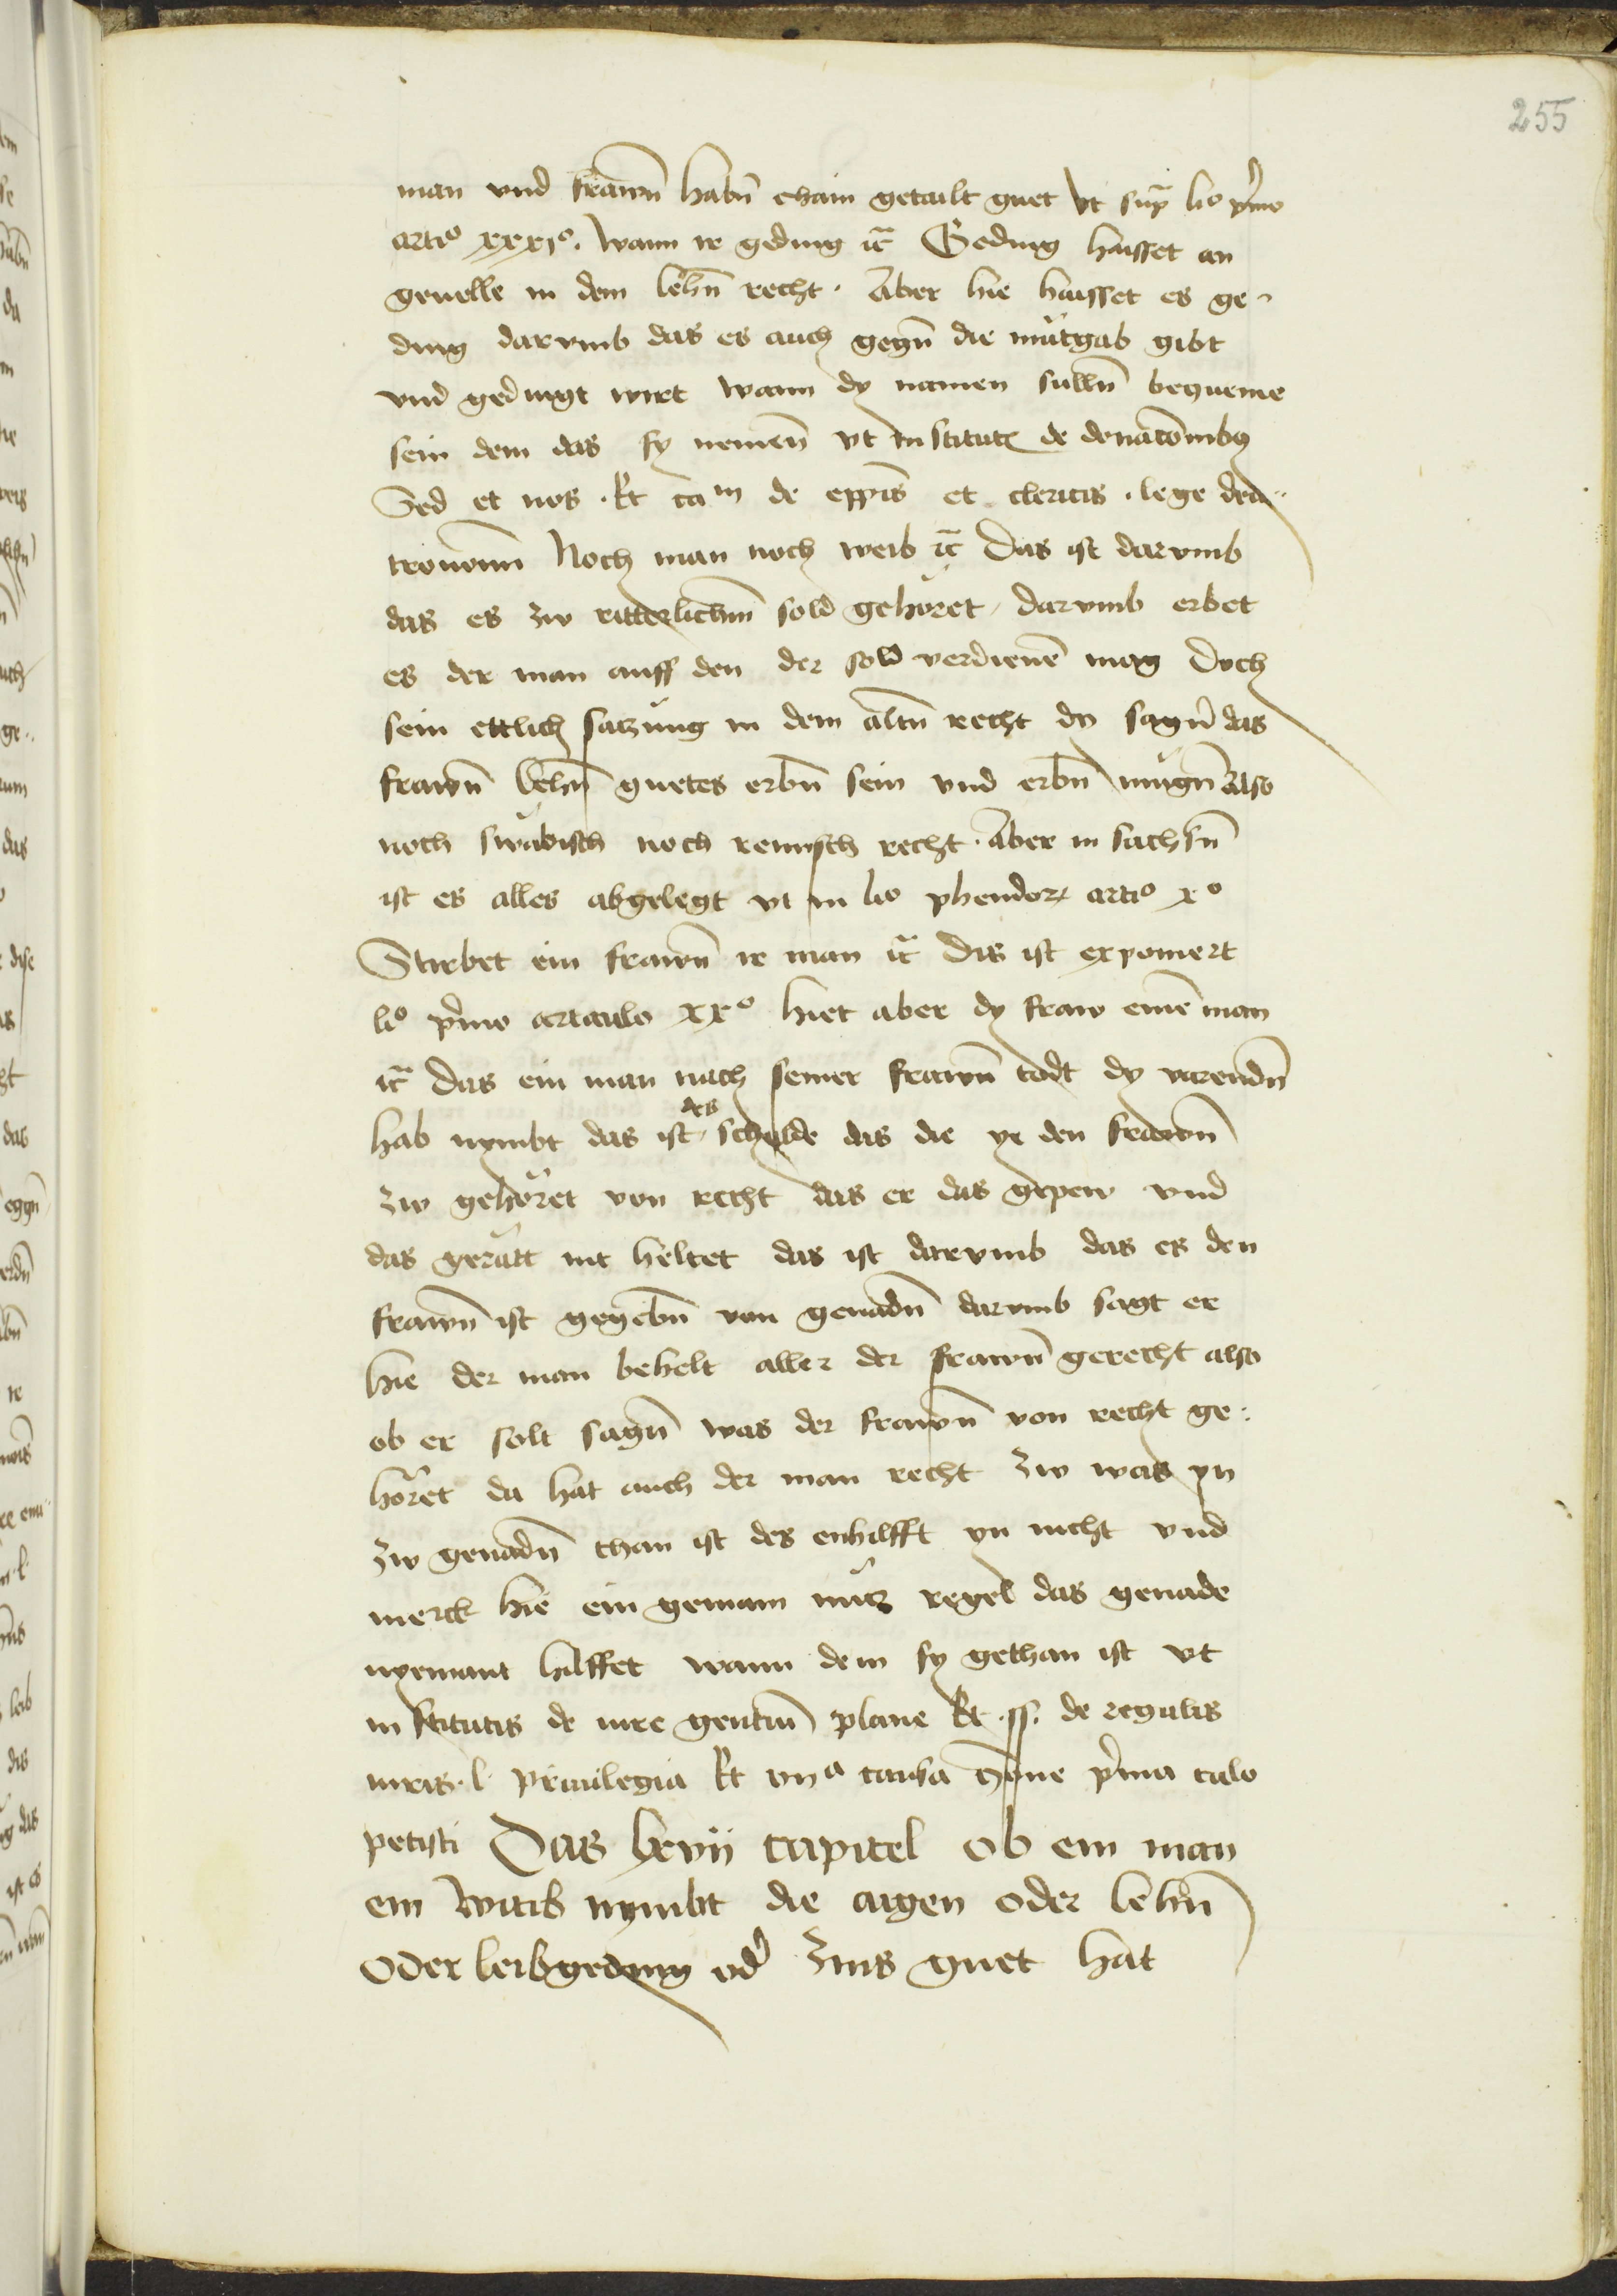 255
man vnd frawn̄ habn̄ chain getailt guet vt sup̄ lio p̄mo
artio xxxio. Wann ir geding ic̄ Geding haisset an
geuelle in dem lehn̄ recht. Aber hie haisset es ge-
ding darvmb das es auch gegn̄ die mu̇tgab gibt
vnd gedingt wirt wann dy namen sulln̄ bequeme
sein dem das sy nemen̄ vt Institut de donac̄onibꝯ
Sed et nos. Et cam de epīs et clericis. lege dea-
tronom̄ Noch man noch weib ic̄ Das ist darvmb
das es zw ritterlichm̄ sold gehȯret, darvmb erbet
es der man auff den der sold verdienē mag Doch
sein ettlich saczung in dem altn̄ recht dy sagn̄ das
frawn̄ lehn̄ guetes erbn̄ sein vnd erbn̄ mu̇gn̄ Also
noch swȧbisch noch remisch recht. Aber in sachsn̄
ist es alles abgelegt vt in lio phendor artio xo
Stirbet ein frawn̄ ir man ic̄ Dis ist exponiert
lio p̄mo articulo xxo hiet aber dy fraw einē man
ic̄ Das ein man nach seiner frawn̄ todt dy varendn̄
hab nymbt das ist des schulde das die ye den frawn̄
zw gehȯret von recht das er das gepew vnd
das gerȧtt nit heltet das ist darvmb das es den
frawn̄ ist gegebn̄ von genadn̄ darvmb sagt er
hie der man behelt aller der frawn̄ gerecht also
ob er solt sagn̄ was der frawn̄ von recht ge-
hȯret da hat auch der man recht zw was yn
zw genadn̄ than ist des enhilfft yn nicht vnd
merck hie ein gemain nu̇cz regel das genade
nyemant hilffet wann dem sy gethan ist vt
in stitutis de iure gentiū plane Et .ff. de regulis
iuris. l. priuilegia Et vna causa q̄one p̄ma calo
petisti Das lxvij capitel ob ein man
ein Weib nymbt die aigen oder lehn̄
oder leibgeding od̄ zins guet hat